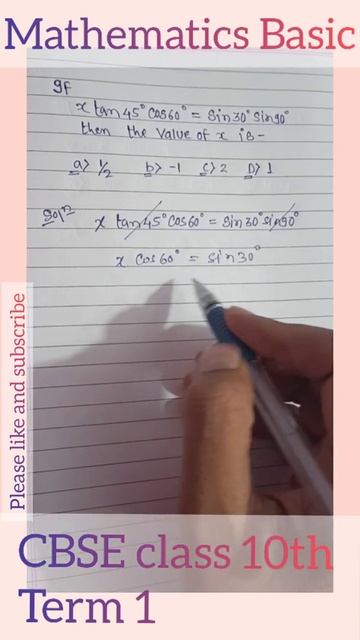 Mathematics Basic
If
x tan45° Cos60° = Sin30° Sin90°
then the Value of x is -
a> 1/2 b> -1 c> 2 D> 1
Solⁿ x tan45° Cos60° = Sin30° Sin90°
x Cos60° = Sin30°
Please like and subscribe
CBSE class 10th
Term 1